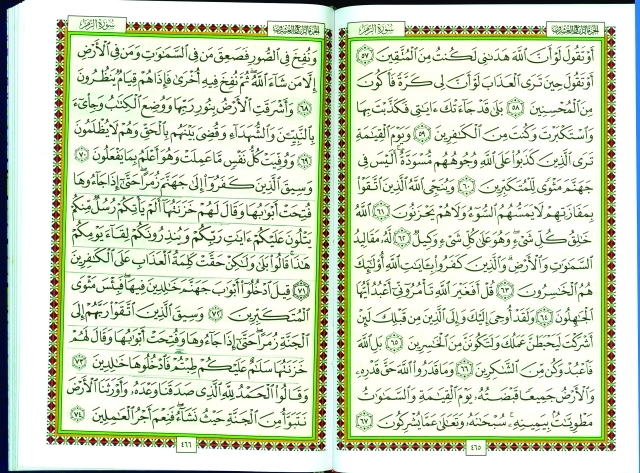 سورة الزمر
أو تقول لو أن الله هدىنى لكنت من المتقين ٥٧
أو تقول حين ترى العذاب لو أن لى كرة فأكون
من المحسنين ٥٨ بلى قد جاءتك ءايتى فكذبت بها
واستكبرت وكنت من الكفرين ٥٩ ويوم القيمة
ترى الذين كذبوا على الله وجوههم مسودة أليس فى
جهنم مثوى للمتكبرين ٦٠ وينجى الله الذين اتقوا
بمفازتهم لا يمسهم السوء ولا هم يحزنون ٦١ الله
خلق كل شىء وهو على كل شىء وكيل ٦٢ له مقاليد
السموت والأرض والذين كفروا بءايت الله أولئك
هم الخسرون ٦٣ قل أفغير الله تأمرونى أعبد أيها
الجهلون ٦٤ ولقد أوحى إليك وإلى الذين من قبلك لئن
أشركت ليحبطن عملك ولتكونن من الخسرين ٦٥ بل الله
فاعبد وكن من الشكرين ٦٦ وما قدروا الله حق قدره
والأرض جميعا قبضته يوم القيمة والسموت
مطويت بيمينه سبحنه وتعلى عما يشركون ٦٧
٤٦٥
سورة الزمر
ونفخ فى الصور فصعق من فى السموت ومن فى الأرض
إلا من شاء الله ثم نفخ فيه أخرى فإذا هم قيام ينظرون
٦٨ وأشرقت الأرض بنور ربها ووضع الكتب وجاىء
بالنبين والشهداء وقضى بينهم بالحق وهم لا يظلمون
٦٩ ووفيت كل نفس ما عملت وهو أعلم بما يفعلون ٧٠
وسيق الذين كفروا إلى جهنم زمرا حتى إذا جاءوها
فتحت أبوبها وقال لهم خزنتها ألم يأتكم رسل منكم
يتلون عليكم ءايت ربكم وينذرونكم لقاء يومكم
هذا قالوا بلى ولكن حقت كلمة العذاب على الكفرين
٧١ قيل ادخلوا أبوب جهنم خلدين فيها فبئس مثوى
المتكبرين ٧٢ وسيق الذين اتقوا ربهم إلى
الجنة زمرا حتى إذا جاءوها وفتحت أبوبها وقال لهم
خزنتها سلم عليكم طبتم فادخلوها خلدين ٧٣
وقالوا الحمد لله الذى صدقنا وعده وأورثنا الأرض
نتبوأ من الجنة حيث نشاء فنعم أجر العملين ٧٤
٤٦٦